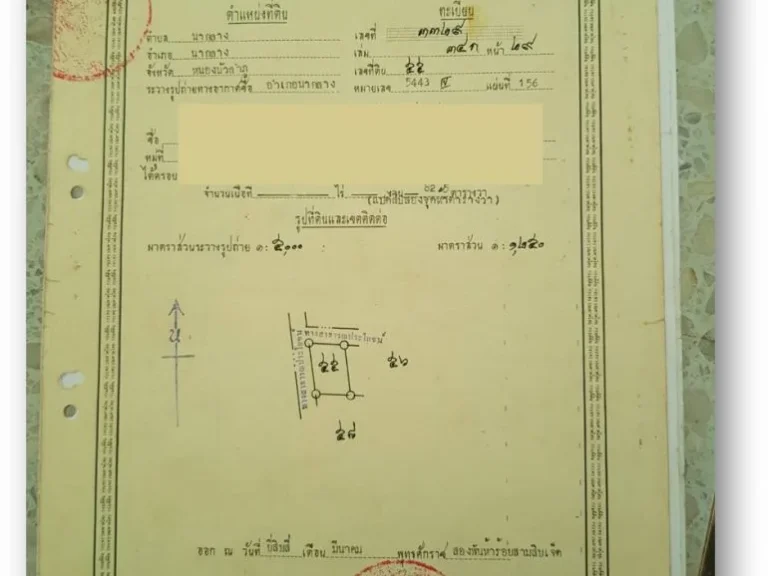 ตำแหน่งที่ดิน
ทะเบียน
ตำบล นากลาง
เลขที่ ๓๓๒๕
อำเภอ นากลาง
เล่ม ๓๔ก หน้า ๒๙
จังหวัด หนองบัวลำภู
เลขที่ดิน ๕๕
ระวางรูปถ่ายทางอากาศชื่อ อำเภอนากลาง หมายเลข 5443 IV แผ่นที่ 156
ชื่อ
หมู่ที่
ได้ครอบ
จำนวนเนื้อที่ ไร่ งาน ตารางวา
รูปที่ดินและเขตติดต่อ
มาตราส่วนระวางรูปถ่าย ๑: ๕,๐๐๐
มาตราส่วน ๑: ๑,๒๕๐
น
ทางสาธารณประโยชน์
ทางสาธารณประโยชน์
๕๕
๕๖
๕๘
ออก ณ วันที่ ยี่สิบสี่ เดือน มีนาคม พุทธศักราช สองพันห้าร้อยสามสิบเจ็ด